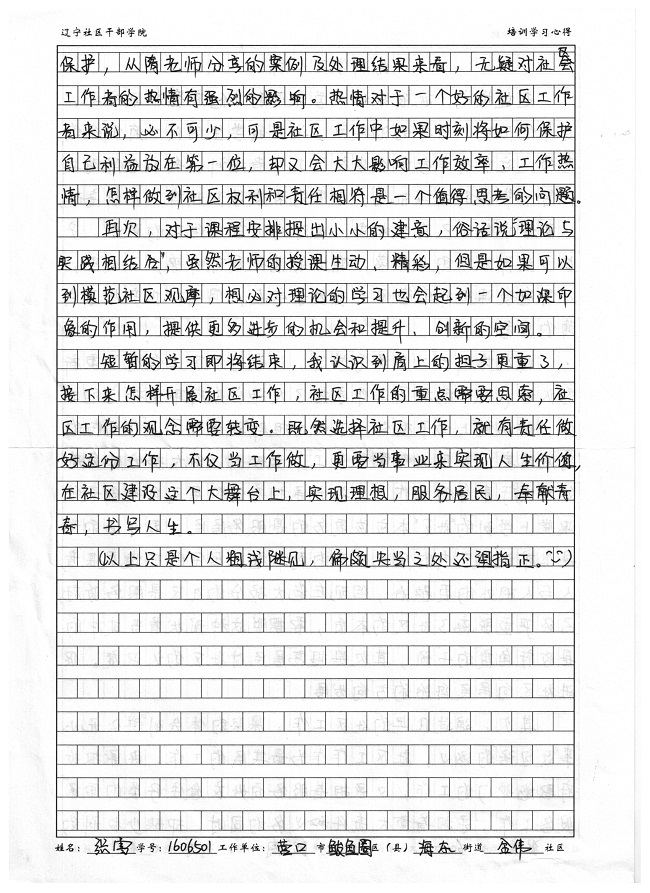 辽宁社区干部学院 培训学习心得
保护，从隋老师分享的案例及处理结果来看，无疑对社会区
工作者的热情有强烈的影响。热情对于一个好的社区工作
者来说，必不可少，可是社区工作中如果时刻将如何保护
自己利益放在第一位，却又会大大影响工作效率、工作热
情，怎样做到社区权利和责任相符是一个值得思考的问题。
再次，对于课程安排提出小小的建意，俗话说“理论与
实践相结合”，虽然老师的授课生动、精彩，但是如果可以
到模范社区观摩，想必对理论的学习也会起到一个加深印
象的作用，提供更多进步的机会和提升、创新的空间。
短暂的学习即将结束，我认识到肩上的担子更重了，
接下来怎样开展社区工作，社区工作的重点需要思索，社
区工作的观念需要转变。既然选择社区工作，就有责任做
好这份工作，不仅当工作做，更要当事业来实现人生价值，
在社区建设这个大舞台上，实现理想，服务居民，奉献青
春，书写人生。
（以上只是个人粗浅陋见，偏颇失当之处还望指正。）
姓名：张 学号：1606501 工作单位：营口 市 鲅鱼圈 区（县） 海东 街道 金伟 社区